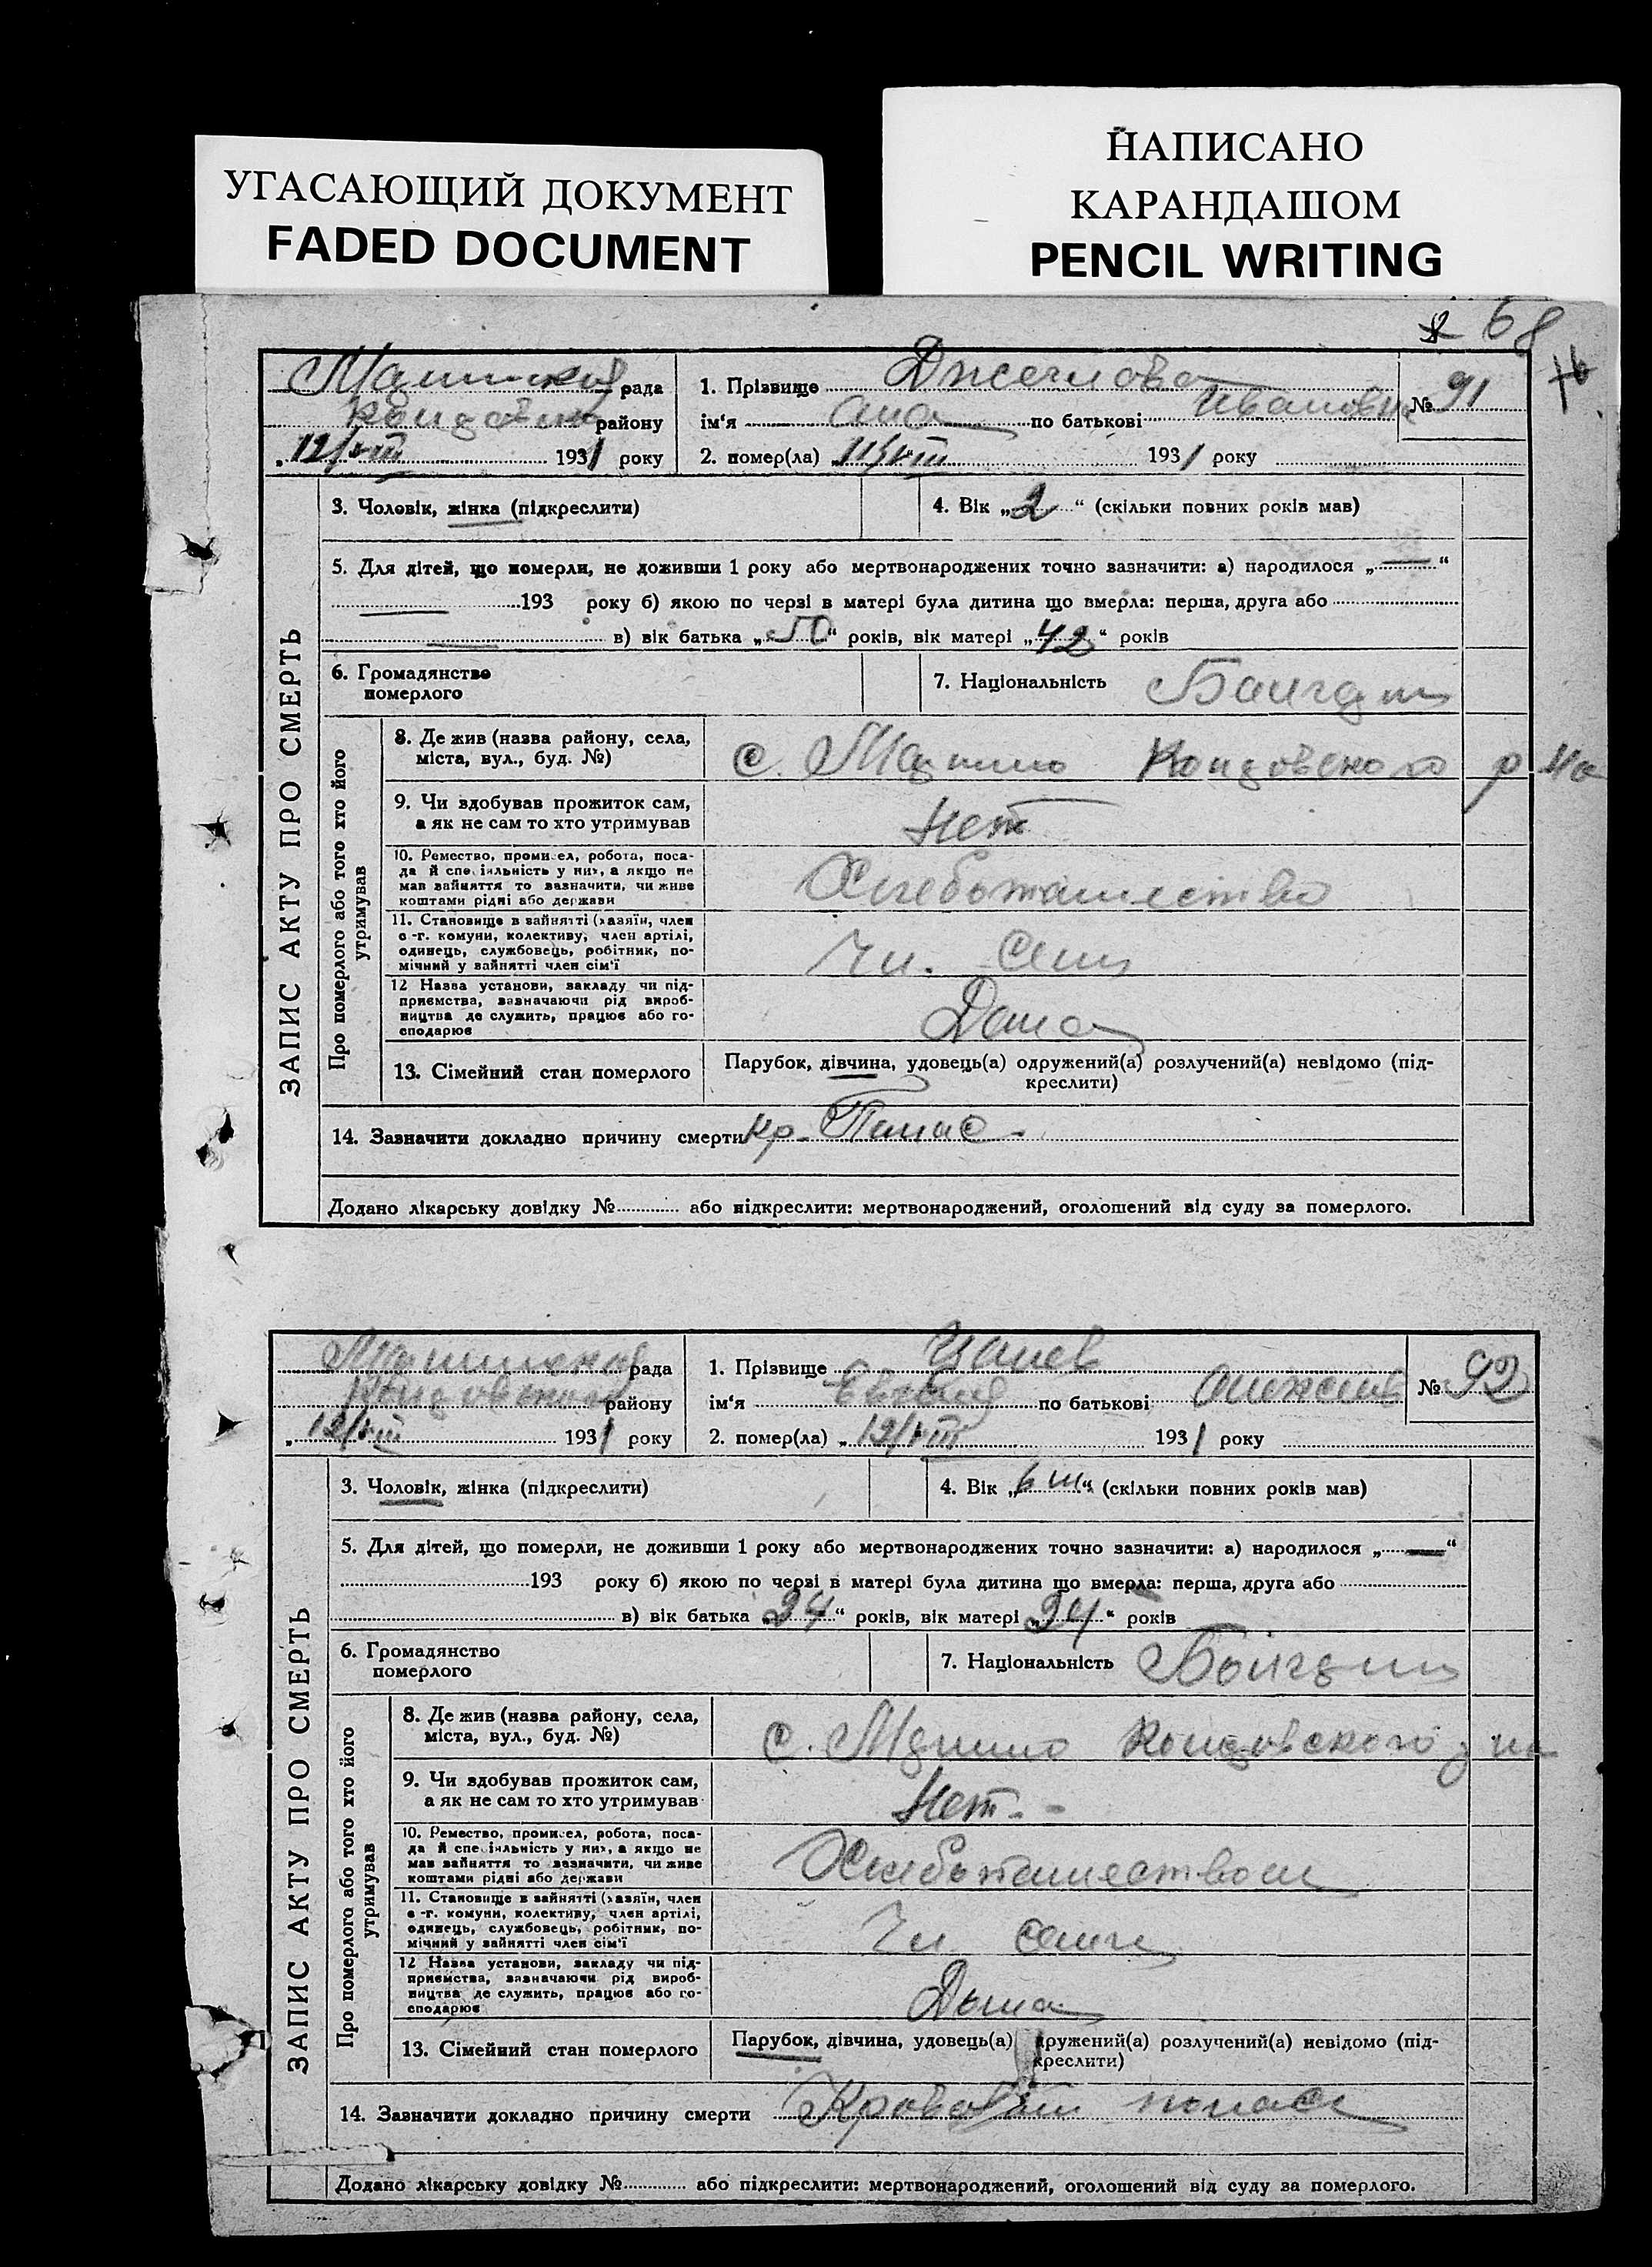 УГАСАЮЩИЙ ДОКУМЕНТ
FADED DOCUMENT
НАПИСАНО
КАРАНДАШОМ
PENCIL WRITING
68
рада
району
12/VIII 1931 року
1. Прізвище
ім'я Ана по батькові Ивановна
2. помер(ла) „11/VIII 1931 року
№ 91
ЗАПИС АКТУ ПРО СМЕРТЬ
3. Чоловік, жінка (підкреслити)
4. Вік „2“ (скільки повних років мав)
5. Для дітей, що померли, не доживши 1 року або мертвонароджених точно зазначити: а) народилося „—“
193 року б) якою по черзі в матері була дитина що вмерла: перша, друга або
в) вік батька „50“ років, вік матері „42“ років
6. Громадянство
померлого
7. Національність
Про померлого або того хто його
утримував
8. Де жив (назва району, села,
міста, вул., буд. №)
с.
9. Чи здобував прожиток сам,
а як не сам то хто утримував
Нет
10. Ремество, промисел, робота, поса-
да й спеціяльність у них, а якщо не
мав зайняття то зазначити, чи живе
коштами рідні або держави
11. Становище в зайнятті (хазяїн, член
с.-г. комуни, колективу, член артілі,
одинець, службовець, робітник, по-
мічний у зайнятті член сім'ї
Чл.
12 Назва установи, закладу чи під-
приємства, зазначаючи рід вироб-
ництва де служить, працює або го-
сподарює
Дома
13. Сімейний стан померлого
Парубок, дівчина, удовець(а) одружений(а) розлучений(а) невідомо (під-
креслити)
14. Зазначити докладно причину смерти Кр. Понас
Додано лікарську довідку № або підкреслити: мертвонароджений, оголошений від суду за померлого.
рада
району
„12/VIII 1931 року
1. Прізвище
ім'я по батькові
2. помер(ла) „12/VIII 1931 року
№ 92
ЗАПИС АКТУ ПРО СМЕРТЬ
3. Чоловік, жінка (підкреслити)
4. Вік „6 м“ (скільки повних років мав)
5. Для дітей, що померли, не доживши 1 року або мертвонароджених точно зазначити: а) народилося „—“
193 року б) якою по черзі в матері була дитина що вмерла: перша, друга або
в) вік батька „24“ років, вік матері „24“ років
6. Громадянство
померлого
7. Національність
Про померлого або того хто його
утримував
8. Де жив (назва району, села,
міста, вул., буд. №)
с.
9. Чи здобував прожиток сам,
а як не сам то хто утримував
Нет
10. Ремество, промисел, робота, поса-
да й спеціяльність у них, а якщо не
мав зайняття то зазначити, чи живе
коштами рідні або держави
11. Становище в зайнятті (хазяїн, член
с.-г. комуни, колективу, член артілі,
одинець, службовець, робітник, по-
мічний у зайнятті член сім'ї
Чл
12 Назва установи, закладу чи під-
приємства, зазначаючи рід вироб-
ництва де служить, працює або го-
сподарює
Дома
13. Сімейний стан померлого
Парубок, дівчина, удовець(а) дружений(а) розлучений(а) невідомо (під-
креслити)
14. Зазначити докладно причину смерти Кровавый понас
Додано лікарську довідку № або підкреслити: мертвонароджений, оголошений від суду за померлого.